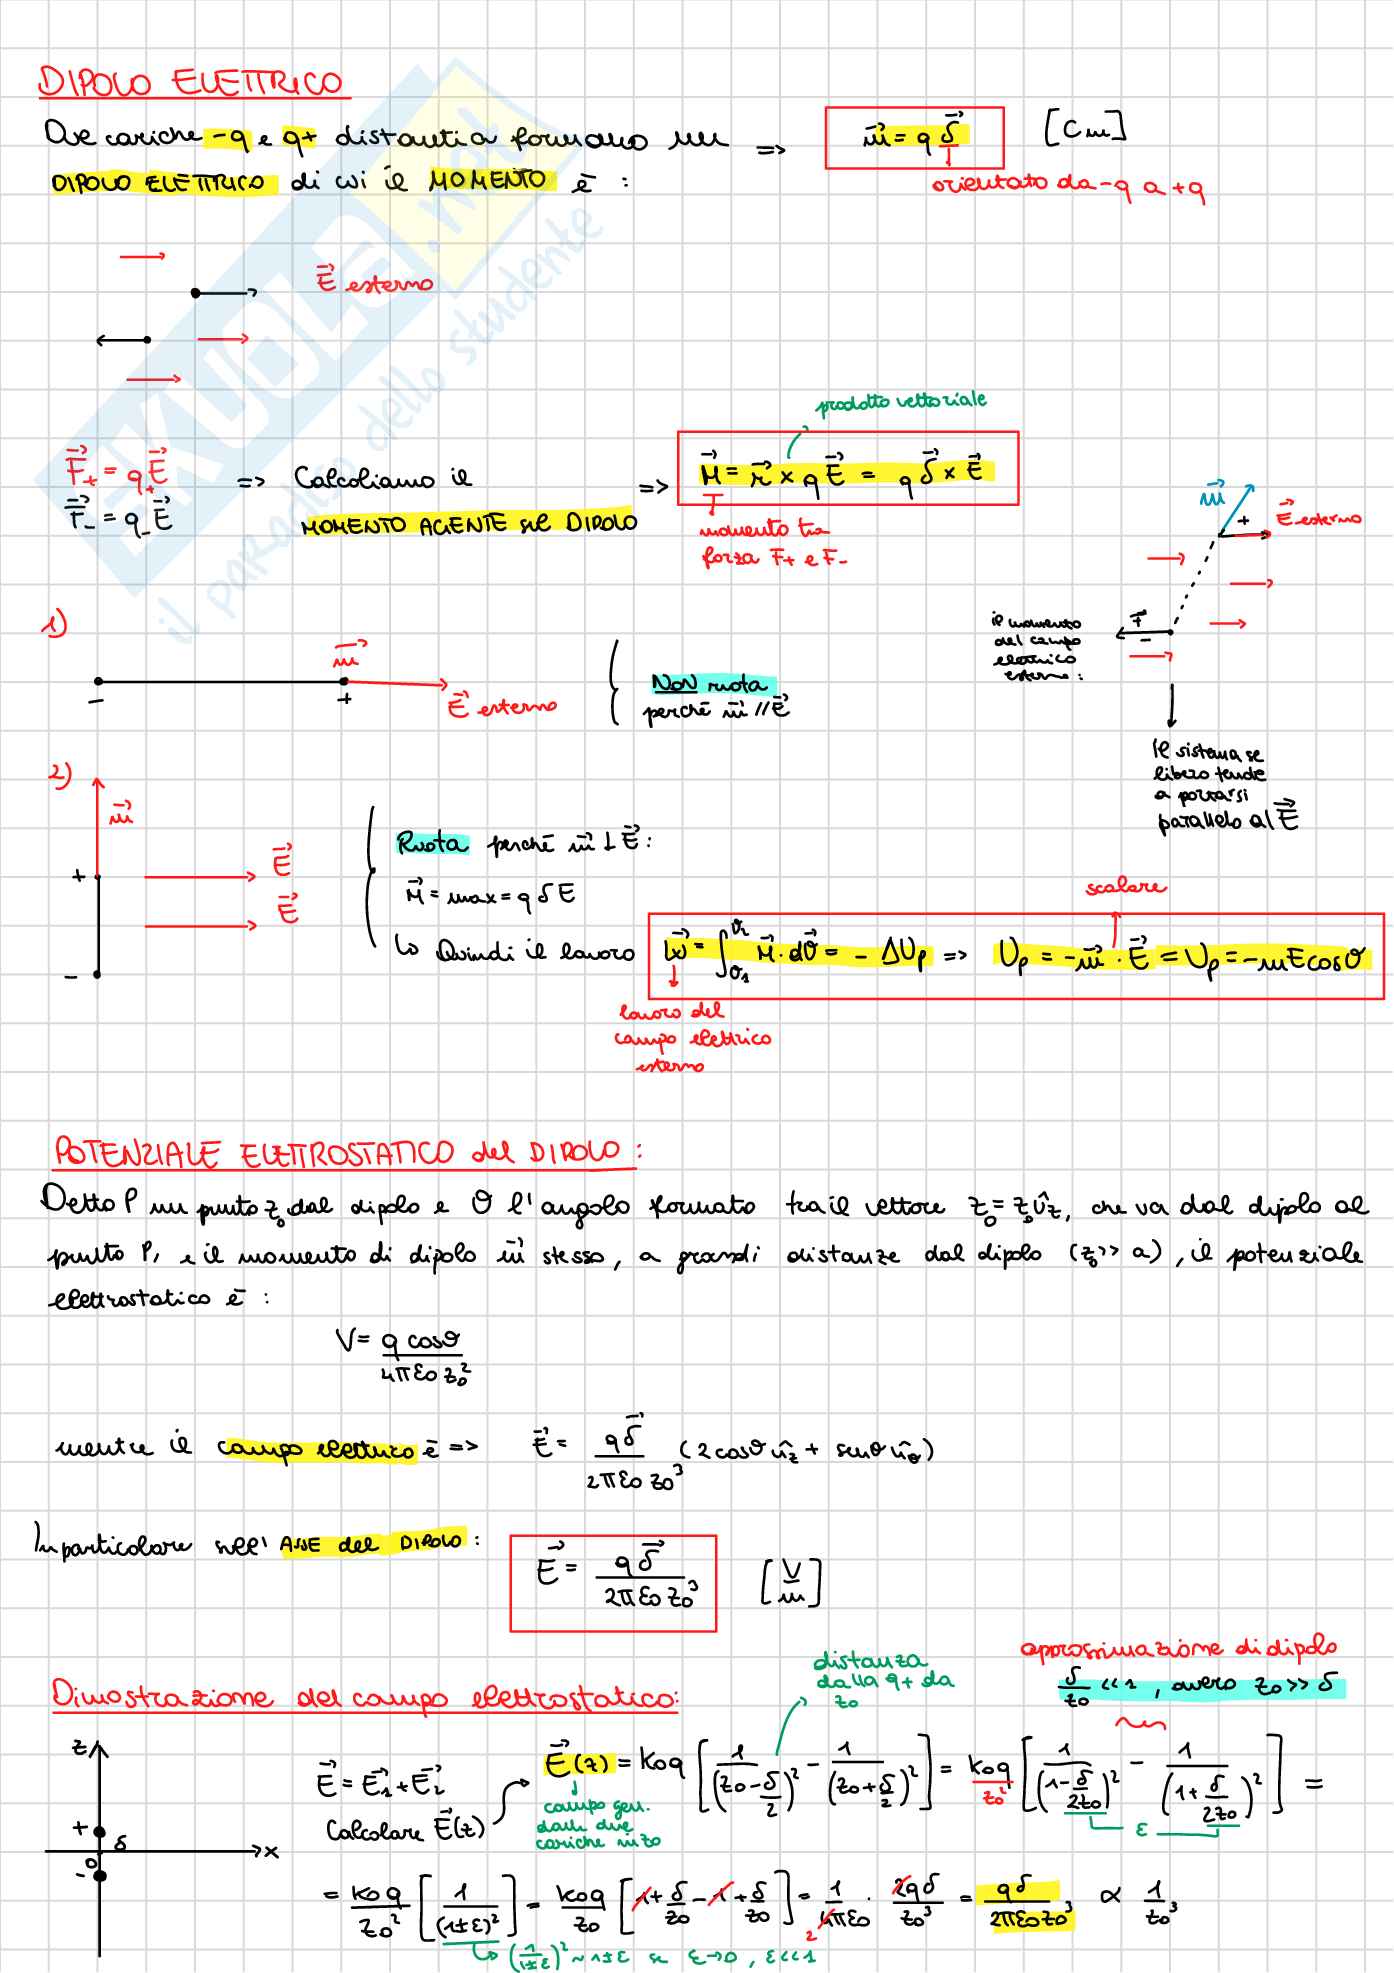 DIPOLO ELETTRICO
Due cariche -q e q+ distanti a formano un => m⃗ = q δ⃗ [C m]
DIPOLO ELETTRICO di cui il MOMENTO è :
orientato da -q a +q
E⃗ esterno
prodotto vettoriale
F⃗₊ = q₊E⃗
F⃗₋ = q₋E⃗
=> Calcoliamo il
MOMENTO AGENTE sul DIPOLO
=> M⃗ = r⃗ × q E⃗ = q δ⃗ × E⃗
momento tra
forza F+ e F-
m⃗
+
E⃗ esterno
F⃗
-
il momento
del campo
elettrico
esterno :
il sistema se
libero tende
a portarsi
parallelo al E⃗
1)
m⃗
- +
E⃗ esterno
NON ruota
perché m⃗ // E⃗
2)
m⃗
+
-
E⃗
E⃗
Ruota perché m⃗ ⊥ E⃗ :
M⃗ = max = q δ E
↳ Quindi il lavoro
scalare
W⃗ = ∫θ₁^θ₂ M⃗ · dθ⃗ = - ΔUp => Up = -m⃗ · E⃗ = Up = -mEcosθ
lavoro del
campo elettrico
esterno
POTENZIALE ELETTROSTATICO del DIPOLO :
Detto P un punto z₀ dal dipolo e θ l'angolo formato tra il vettore z₀ = z₀ûz, che va dal dipolo al
punto P, e il momento di dipolo m⃗ stesso, a grandi distanze dal dipolo (z₀ >> a), il potenziale
elettrostatico è :
V = q cosθ / 4πε₀ z₀²
mentre il campo elettrico è => E⃗ = qδ⃗ / 2πε₀ z₀³ (2cosθ ûz + senθ ûθ)
In particolare sull' ASSE del DIPOLO : E⃗ = qδ⃗ / 2πε₀ z₀³ [V/m]
approssimazione di dipolo
δ/z₀ << 1 , ovvero z₀ >> δ
distanza
dalla q+ da
z₀
Dimostrazione del campo elettrostatico:
z
+
0
-
δ
x
E⃗ = E⃗₁ + E⃗₂
Calcolare E⃗(z)
E⃗(z) = k₀q [1/(z₀ - δ/2)² - 1/(z₀ + δ/2)²] = k₀q/z₀² [1/(1 - δ/2z₀)² - 1/(1 + δ/2z₀)²] =
ε
campo gen.
dalle due
cariche in z₀
= k₀q/z₀² [1/(1±ε)²] = k₀q/z₀ [1 + δ/z₀ - 1 + δ/z₀] = 1/4πε₀ · 2qδ/z₀³ = qδ/2πε₀z₀³ ∝ 1/z₀³
2
↳ (1/1±ε)² ~ 1±ε se ε→0 , ε<<1
SKUOLA.net
il paradiso dello studente